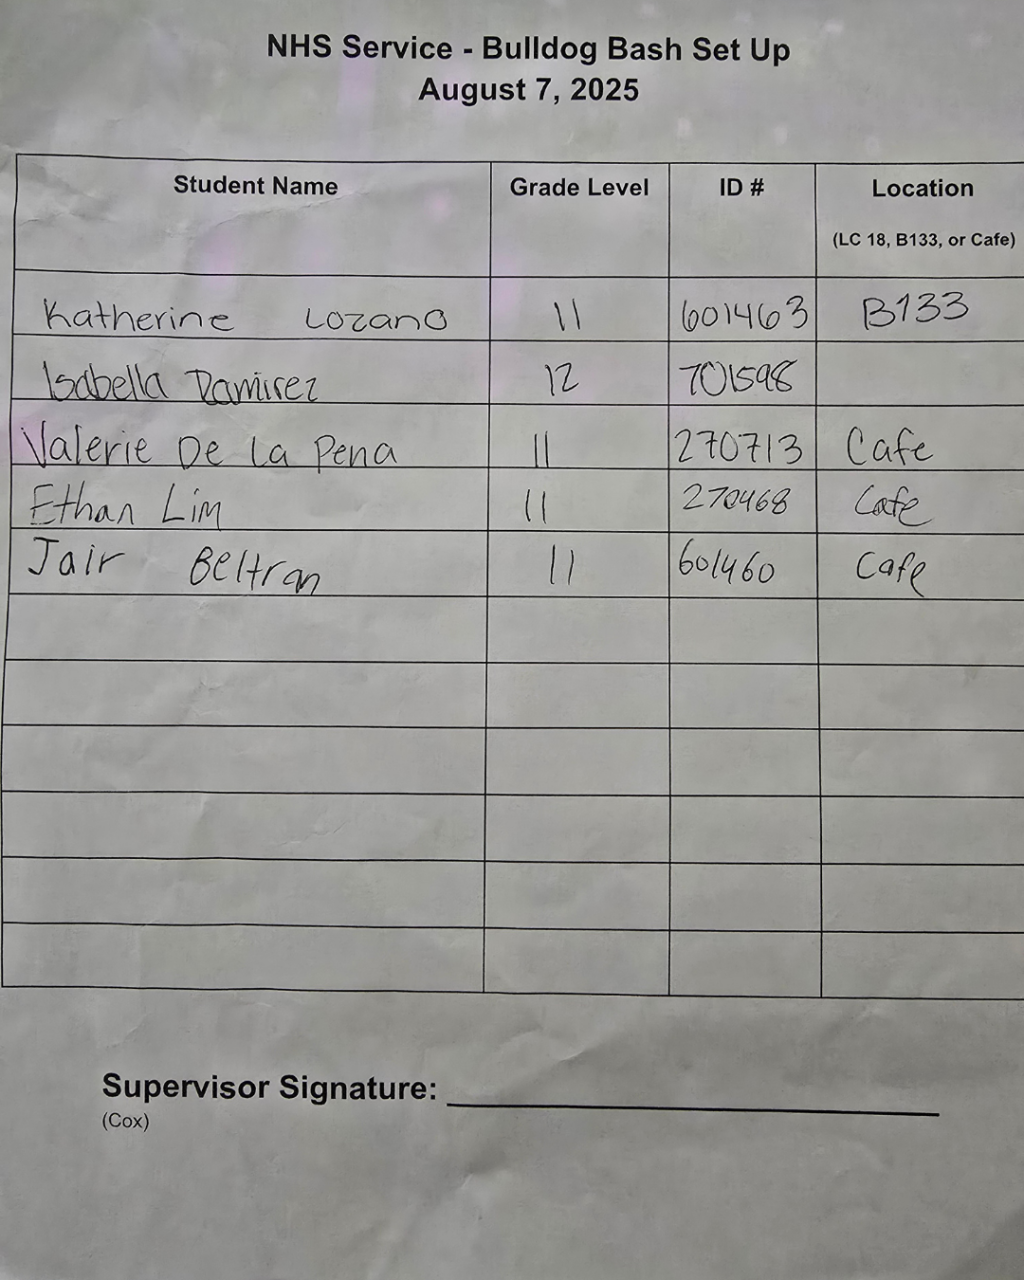 NHS Service - Bulldog Bash Set Up
August 7, 2025
Student Name Grade Level ID # Location
(LC 18, B133, or Cafe)
Katherine Lozano 11 601463 B133
Isabella Ramirez 12 701598
Valerie De La Pena 11 270713 Cafe
Ethan Lim 11 270468 Cafe
Jair Beltran 11 601460 Cafe
Supervisor Signature:
(Cox)